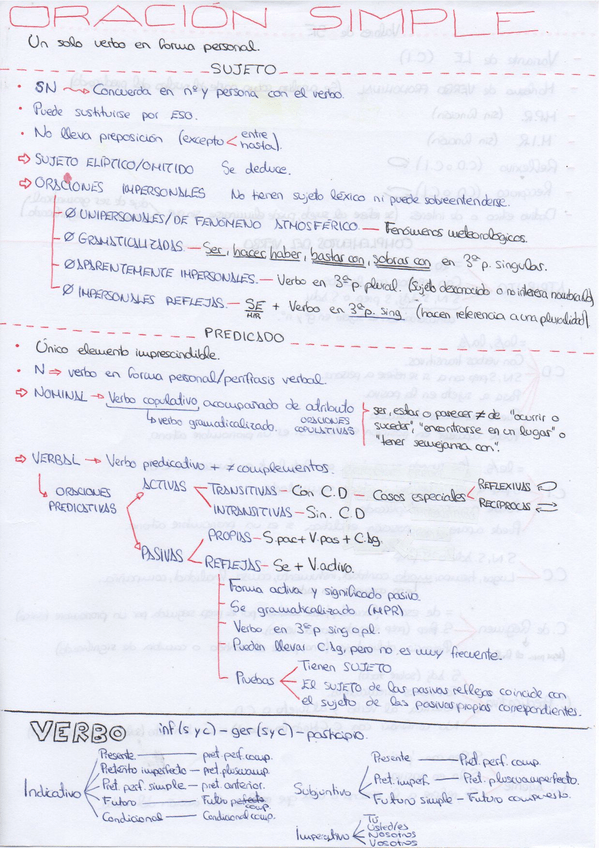 ORACIÓN SIMPLE
Un solo verbo en forma personal.
SUJETO
• SN → Concuerda en nº y persona con el verbo.
• Puede sustituirse por ESO.
• No lleva preposición (excepto < entre
hasta).
⇨ SUJETO ELÍPTICO/OMITIDO Se deduce.
⇨ ORACIONES IMPERSONALES No tienen sujeto léxico ni puede sobreentenderse.
Ø UNIPERSONALES/DE FENÓMENO ATMOSFÉRICO. — Fenómenos meteorológicos.
Ø GRAMATICALIZADAS — Ser, hacer, haber, bastar con, sobrar con en 3ª p. singular.
Ø APARENTEMENTE IMPERSONALES. — Verbo en 3ª p. plural. (Sujeto desconocido o no interesa nombrarlo)
Ø IMPERSONALES REFLEJAS. — SE + Verbo en 3ª p. sing. (hacen referencia a una pluralidad)
MIR
PREDICADO
• Único elemento imprescindible.
• N ⇒ verbo en forma personal/perífrasis verbal.
⇨ NOMINAL → Verbo copulativo, acompañado de atributo
↳ verbo gramaticalizado. ORACIONES COPULATIVAS
ser, estar o parecer ≠ de "ocurrir o
suceder", "encontrarse en un lugar" o
"tener semejanza con".
⇨ VERBAL → Verbo predicativo + ≠ complementos.
↳ ORACIONES PREDICATIVAS
ACTIVAS
TRANSITIVAS — Con C.D — Casos especiales
REFLEXIVAS
RECÍPROCAS
INTRANSITIVAS — Sin C.D
PASIVAS
PROPIAS — S pac + V pas + C.Ag.
REFLEJAS — Se + V.activo.
Forma activa y significado pasivo.
Se gramaticalizado (MPR)
Verbo en 3ª p sing o pl.
Pueden llevar C.Ag, pero no es muy frecuente.
Pruebas
Tienen SUJETO
El SUJETO de las pasivas reflejas coincide con
el sujeto de las pasivas propias correspondientes.
VERBO inf (s y c) – ger (s y c) – participio.
Indicativo
Presente — pret. perf. comp.
Pretérito imperfecto — pret. pluscuamp.
Pret. perf. simple — pret. anterior.
Futuro — Futuro comp.
Condicional — Condicional comp.
Subjuntivo
Presente — Pret. perf. comp.
Pret. imperf. — Pret. pluscuamperfecto.
Futuro simple — Futuro compuesto.
Imperativo
Tú
Usted/es
Nosotros
Vosotros